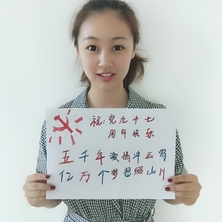 祝:党九十七
周年快乐
五千年斗云
亿万个梦想缀山川